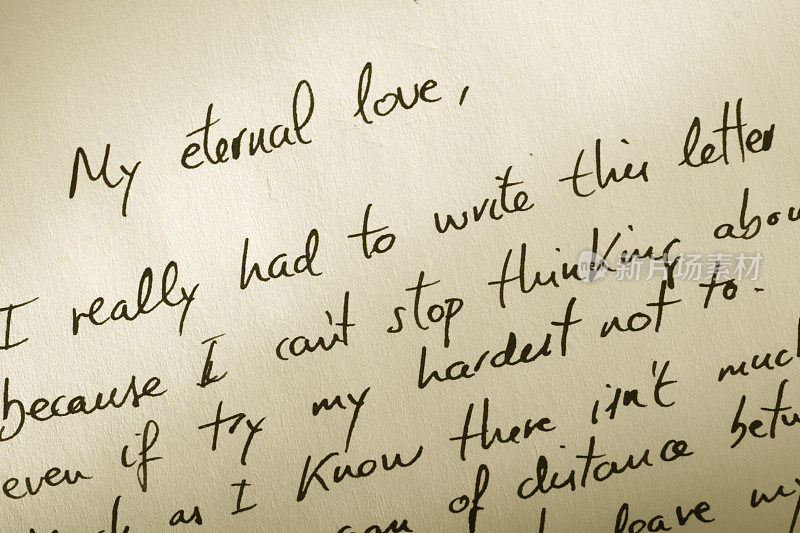 My eternal love,
I really had to write this letter
because I can't stop thinking abou
even if try my hardest not to.
as I know there isn't much
of distance betw
leave my
new 新片场素材